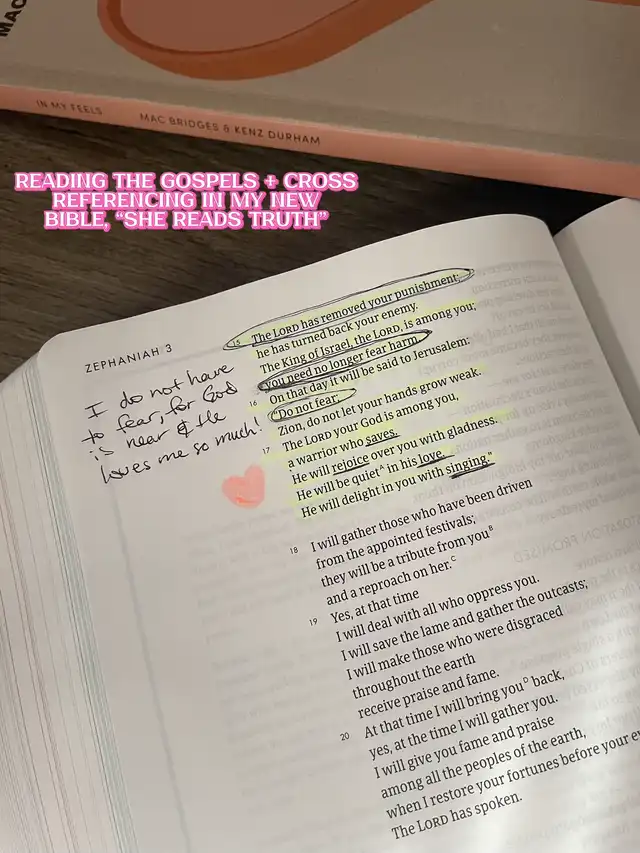 MAC
IN MY FEELS MAC BRIDGES & KENZ DURHAM
READING THE GOSPELS + CROSS
REFERENCING IN MY NEW
BIBLE, “SHE READS TRUTH”
ZEPHANIAH 3
I do not have
to fear, for God
is near & He
loves me so much!
15 The LORD has removed your punishment;
he has turned back your enemy.
The King of Israel, the LORD, is among you;
you need no longer fear harm.
16 On that day it will be said to Jerusalem:
"Do not fear;
Zion, do not let your hands grow weak.
17 The LORD your God is among you,
a warrior who saves.
He will rejoice over you with gladness.
He will be quietᴬ in his love.
He will delight in you with singing."
18 I will gather those who have been driven
from the appointed festivals;
they will be a tribute from youᴮ
and a reproach on her.ᶜ
19 Yes, at that time
I will deal with all who oppress you.
I will save the lame and gather the outcasts;
I will make those who were disgraced
throughout the earth
receive praise and fame.
20 At that time I will bring youᴰ back,
yes, at the time I will gather you.
I will give you fame and praise
among all the peoples of the earth,
when I restore your fortunes before your
The LORD has spoken.